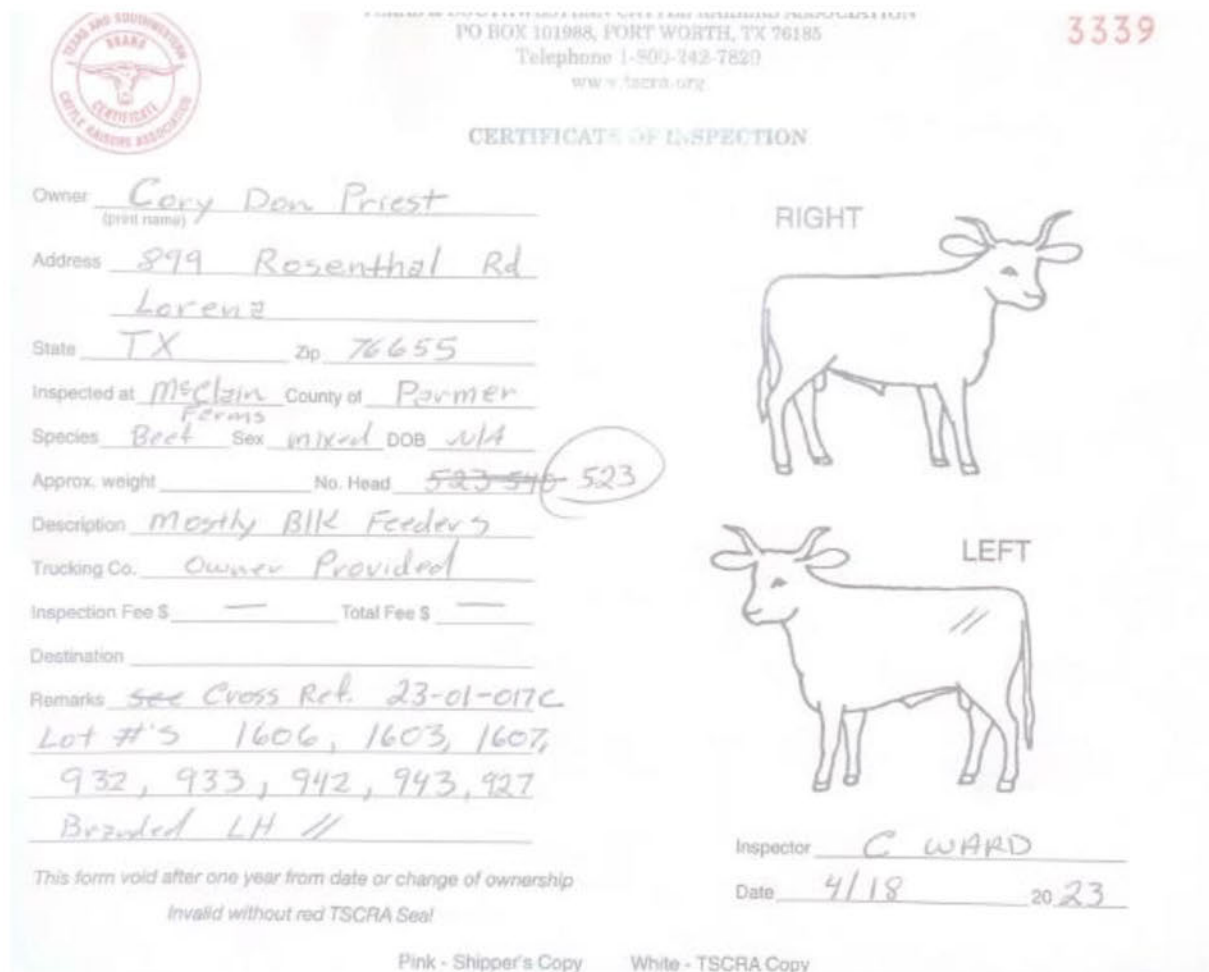 TEXAS & SOUTHWESTERN CATTLE RAISERS ASSOCIATION
PO BOX 101988, FORT WORTH, TX 76185
Telephone 1-800-242-7820
www.tscra.org
3339
TEXAS AND SOUTHWESTERN
BRAND
CERTIFICATE
CATTLE RAISERS ASSOCIATION
CERTIFICATE OF INSPECTION
Owner Cory Don Priest
(print name)
Address 899 Rosenthal Rd
Lorena
State TX Zip 76655
Inspected at McClain Farms County of Parmer
Species Beef Sex mixed DOB N/A
Approx. weight No. Head 523 540 523
Description Mostly Blk Feeders
Trucking Co. Owner Provided
Inspection Fee $ — Total Fee $ —
Destination
Remarks See Cross Ref. 23-01-017C
Lot #'s 1606, 1603, 1607,
932, 933, 942, 943, 927
Branded LH //
This form void after one year from date or change of ownership
Invalid without red TSCRA Seal
RIGHT
LEFT
//
Inspector C WARD
Date 4/18 20 23
Pink - Shipper's Copy White - TSCRA Copy